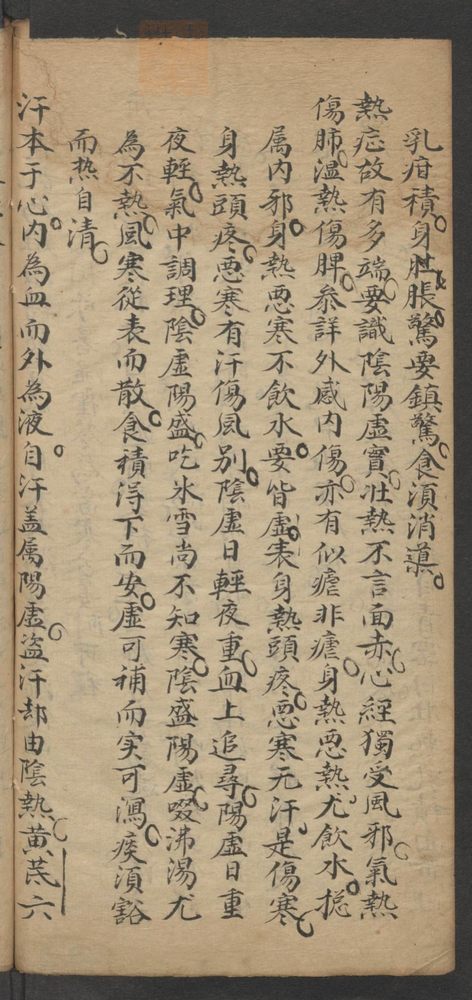 乳疳積身肚脹驚要鎮驚食須消導
熱症故有多端要識陰陽虛實壯熱不言面赤心經獨受風邪氣熱
傷肺温熱傷脾參詳外感内傷亦有似瘧非瘧身熱惡熱尤飲水総
属内邪身熱惡寒不飲水要皆虛表身熱頭疼惡寒无汗是傷寒
身熱頭疼惡寒有汗傷風别陰虛日輕夜重血上追尋陽虛日重
夜輕氣中調理陰虛陽盛吃氷雪尚不知寒陰盛陽虛啜沸湯尤
為不熱風寒從表而散食積得下而安虛可補而实可瀉痰須豁
而热自清
汗本于心内為血而外為液自汗盖属陽虛盗汗却由陰熱黄芪六